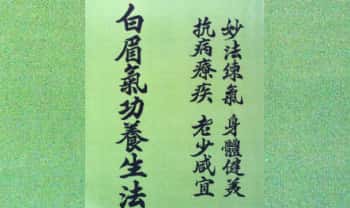 妙法練氣 身體健美
抗病療疾 老少咸宜
白眉氣功養生法